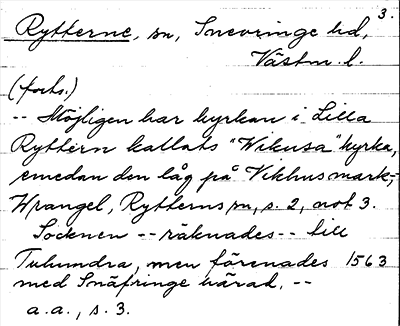 3.
Rytterne, sn, Snevringe hd,
Västm. l.
(forts.)
-- Möjligen har kyrkan i Lilla
Ryttern kallats "Wikusa" kyrka,
emedan den låg på Vikhus mark,-
Wrangel, Rytterns sn, s. 2, not 3.
Socknen -- räknades -- till
Tuhundra, men förenades 1563
med Snäfringe härad. --
a.a., s. 3.